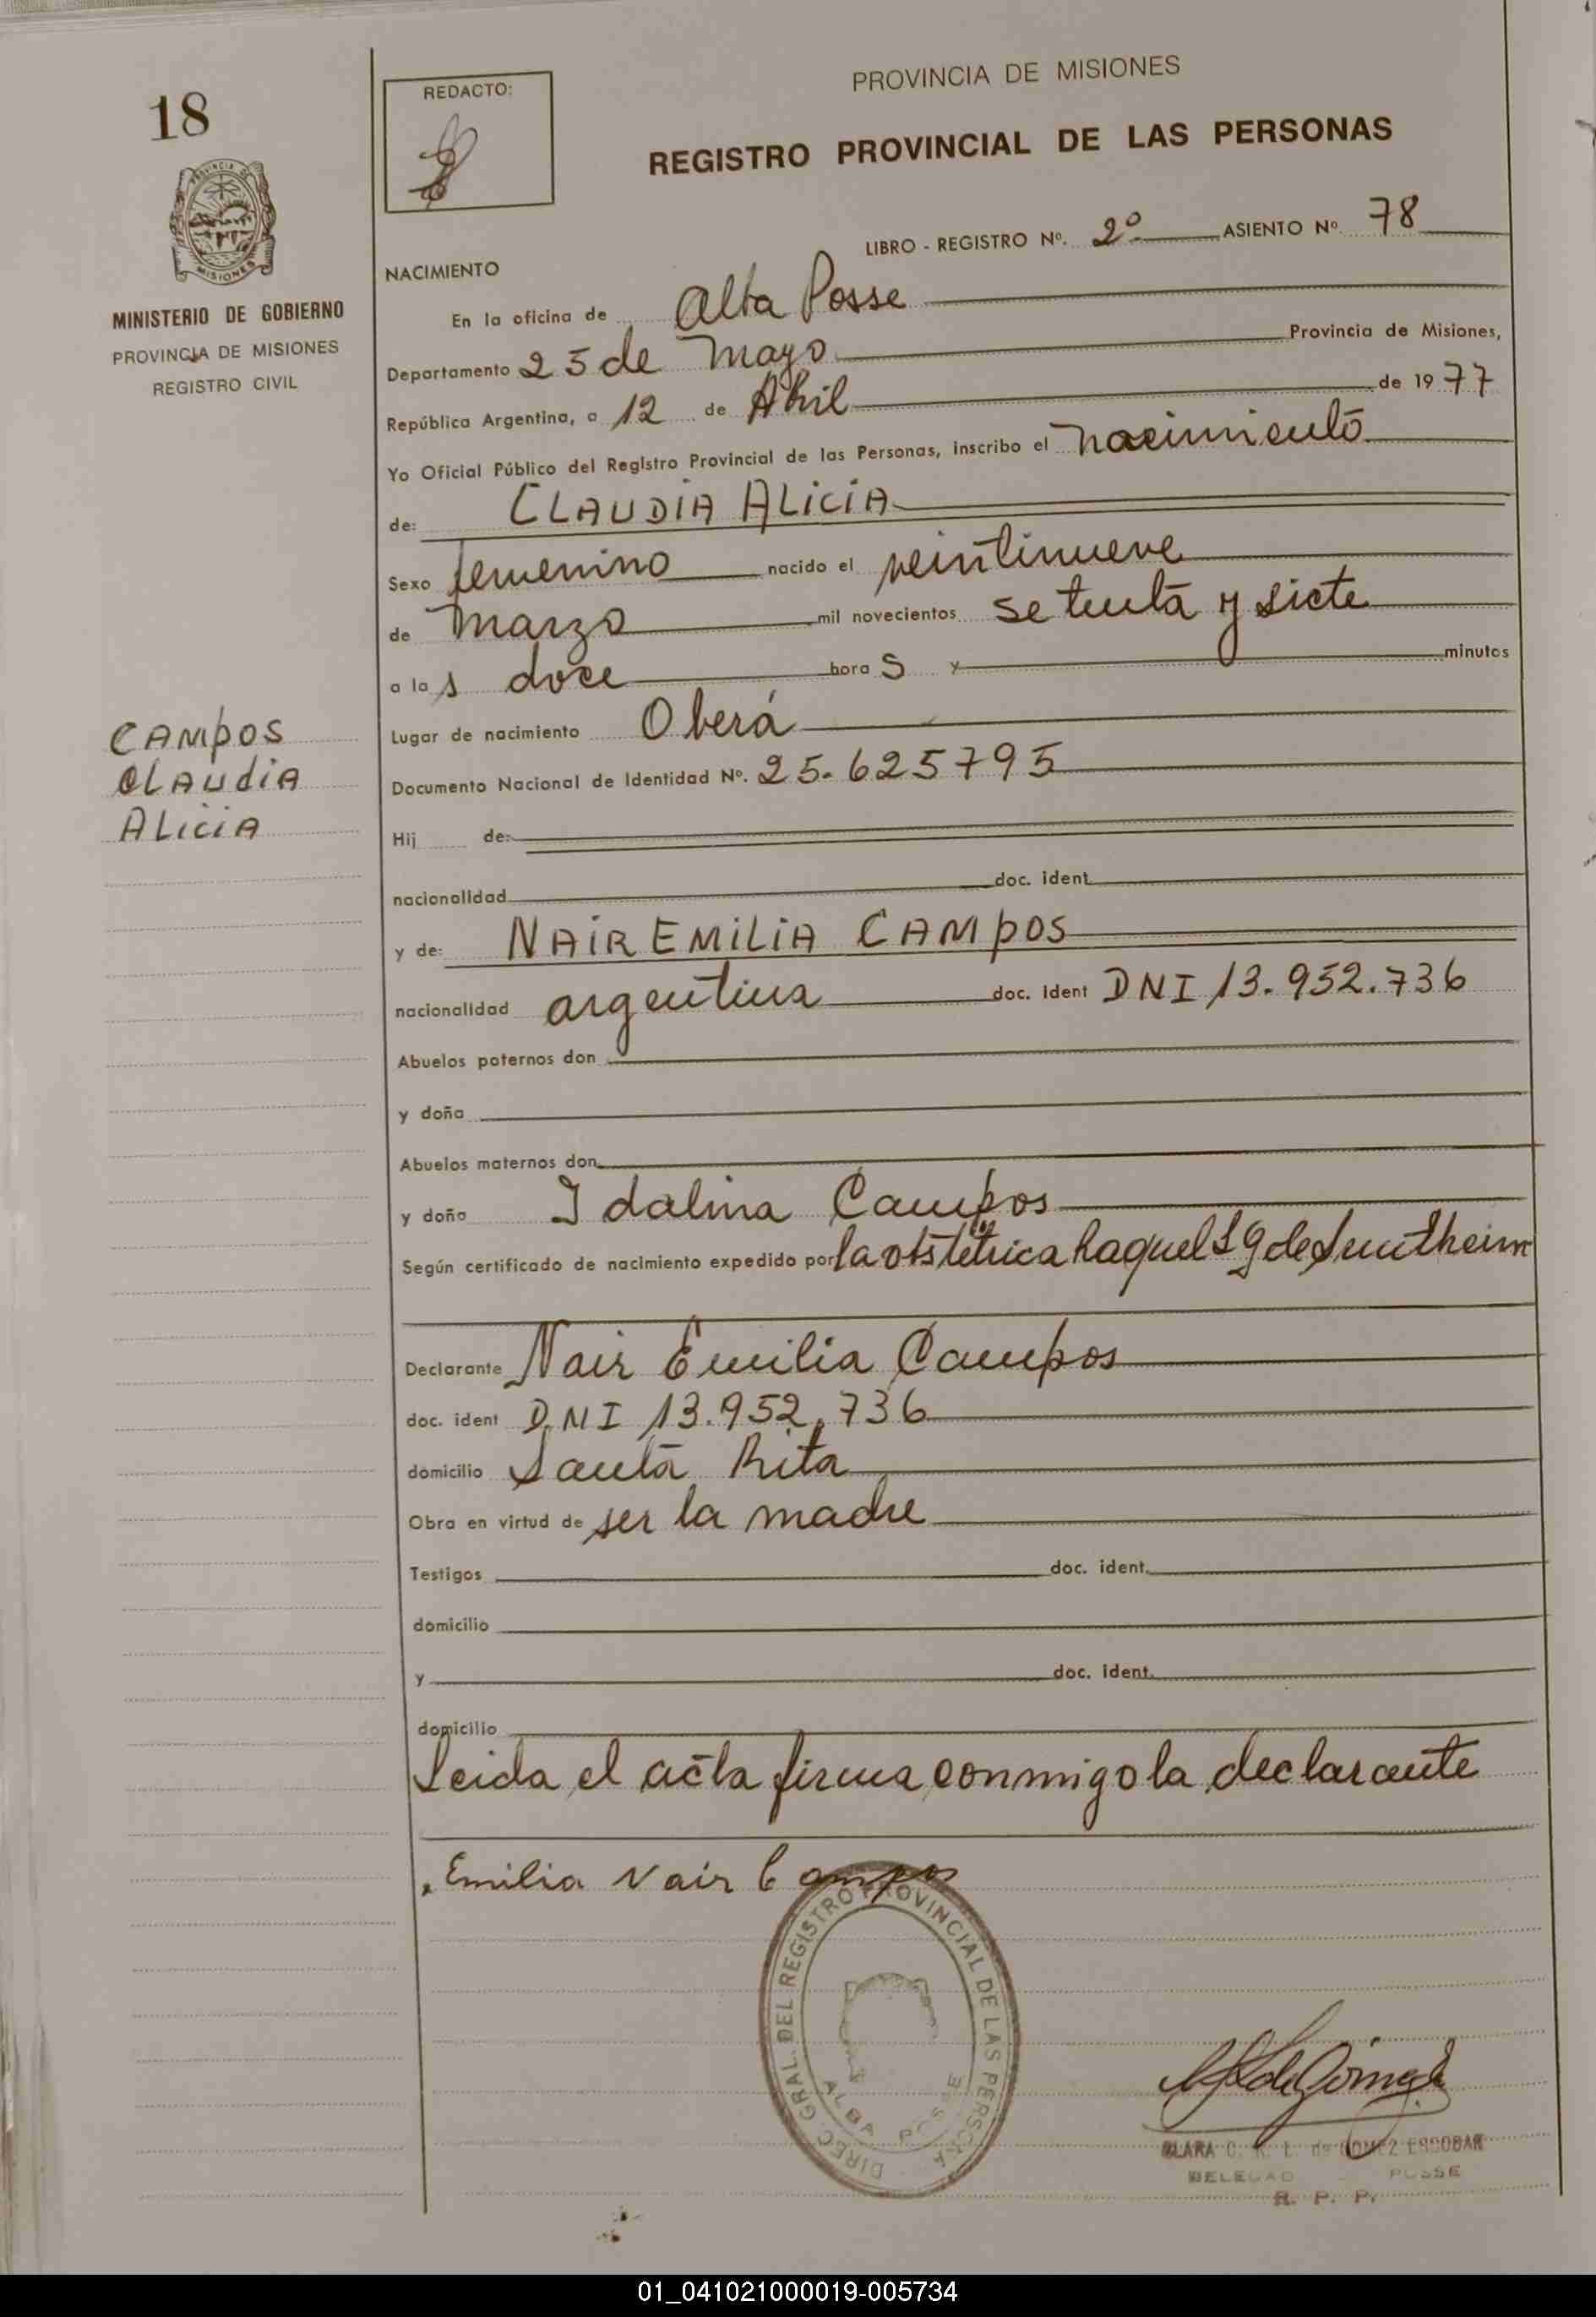 18
REDACTO:
PROVINCIA DE MISIONES
REGISTRO PROVINCIAL DE LAS PERSONAS
PROVINCIA DE
MISIONES
MINISTERIO DE GOBIERNO
PROVINCIA DE MISIONES
REGISTRO CIVIL
LIBRO - REGISTRO Nº. 2º ASIENTO Nº 78
NACIMIENTO
En la oficina de Alba Posse
Departamento 25 de Mayo Provincia de Misiones,
República Argentina, a 12 de Abril de 1977
Yo Oficial Público del Registro Provincial de las Personas, inscribo el nacimiento
de: CLAUDIA ALICIA
Sexo femenino nacido el veintinueve
de Marzo mil novecientos setenta y siete
a las doce horas y minutos
Lugar de nacimiento Oberá
CAMPOS
CLAUDIA
ALICIA
Documento Nacional de Identidad Nº. 25.625795
Hij de:
nacionalidad doc. ident
y de: NAIR EMILIA CAMPOS
nacionalidad argentina doc. ident DNI 13.952.736
Abuelos paternos don
y doña
Abuelos maternos don
y doña Idalina Campos
Según certificado de nacimiento expedido por la obstétrica Raquel S G de
Declarante Nair Emilia Campos
doc. ident DNI 13.952.736
domicilio Santa Rita
Obra en virtud de ser la madre
Testigos doc. ident.
domicilio
y doc. ident.
domicilio
Leida el acta firma conmigo la declarante
Emilia Nair Campos
DIREC. GRAL. DEL REGISTRO PROVINCIAL DE LAS PERSONAS
ALBA POSSE
CLARA C. R. L. de GOMEZ ESCOBAR
POSSE
R. P. P.
01_041021000019-005734